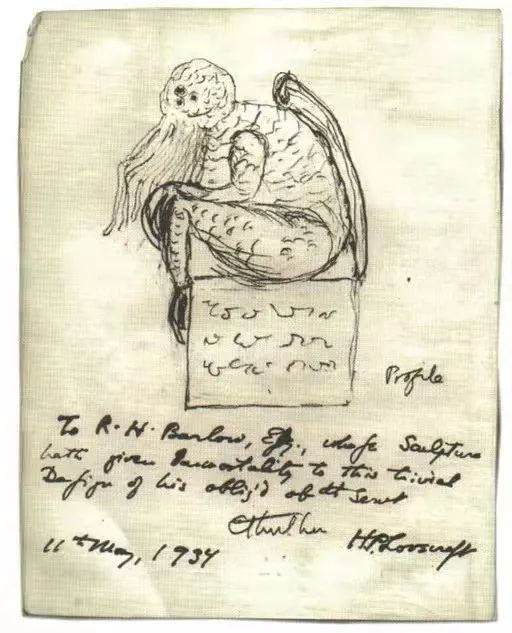 Profile
To R. H. Barlow, Esq., whose Sculpture
hath given Immortality to this trivial
Design of his oblig'd obdt Servt
Cthulhu
11th May, 1934 H P Lovecraft